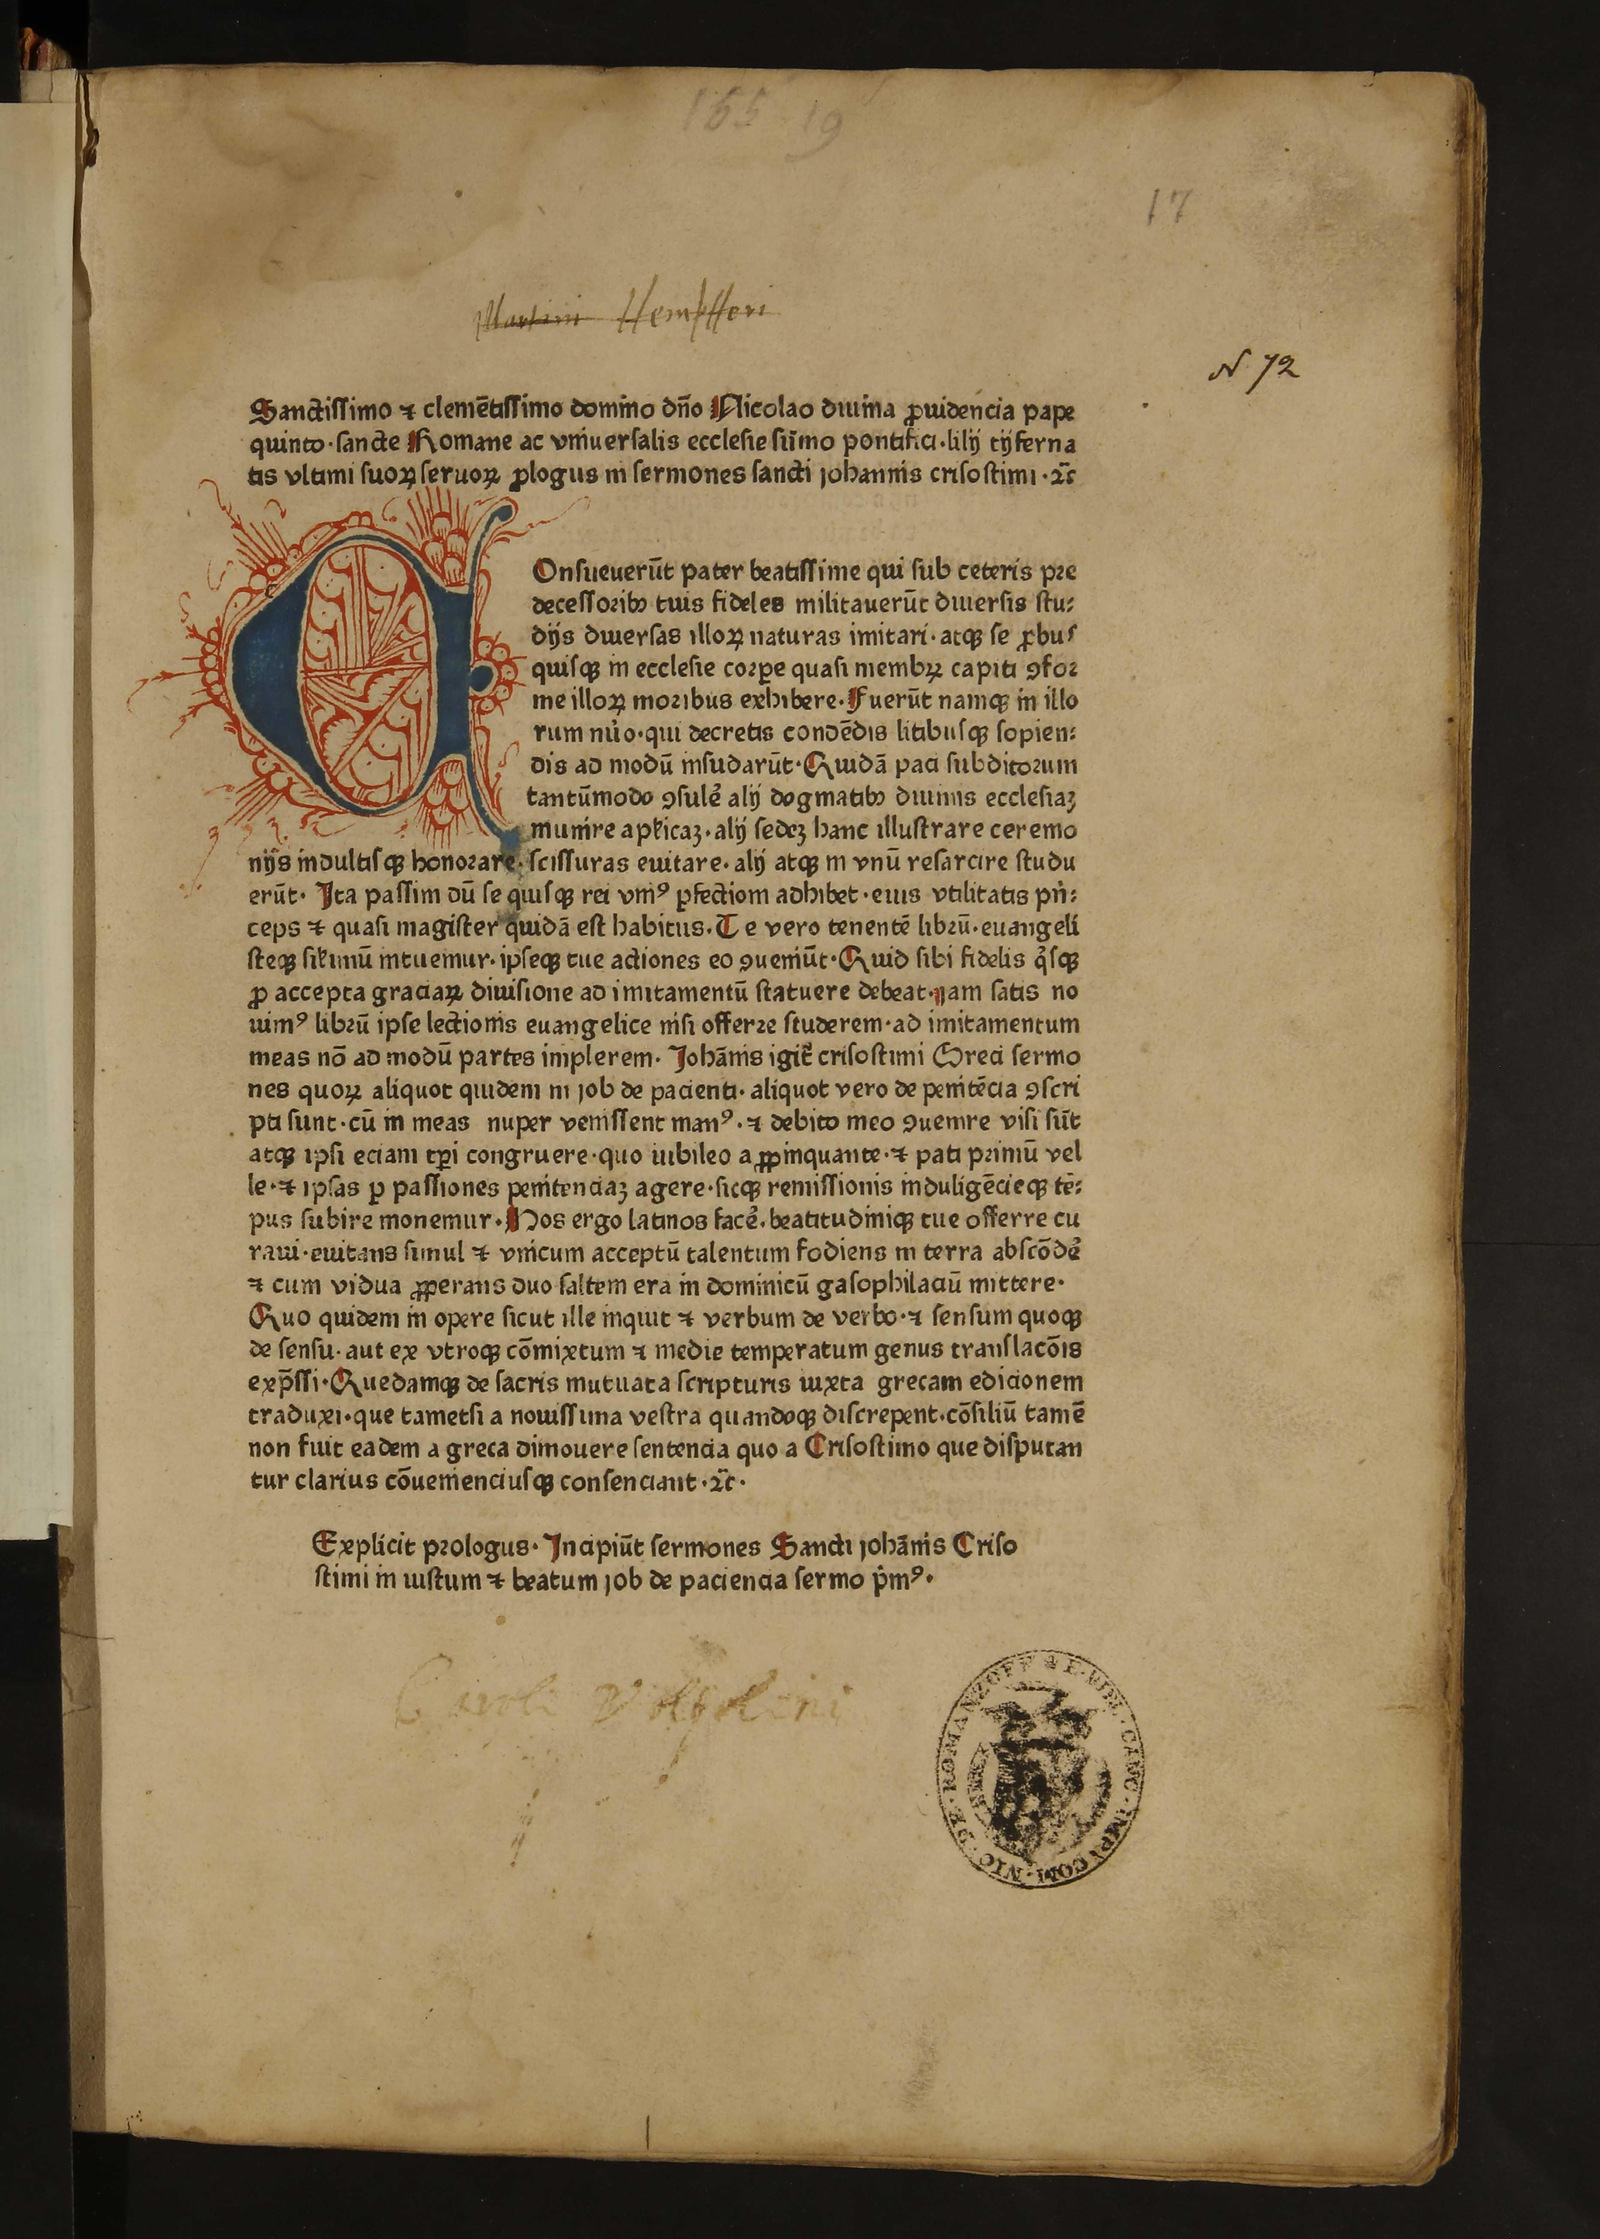 165 19
17
Martini Hempfferi
N 72
Sanctissimo ⁊ clemētissimo domino dño Nicolao diuina ꝓuidencia pape
quinto · sancte Romane ac vniuersalis ecclesie sūmo pontifici · lilij tijferna
tis vltimi suoꝝ seruoꝝ ꝓlogus in sermones sancti johannis crisostimi · ⁊c̄
C
Onsueuerūt pater beatissime qui sub ceteris pre
decessoribꝫ tuis fideles militauerūt diuersis stu:
dijs diuersas illoꝝ naturas imitari · atqꝫ se ꝓbus
quisqꝫ in ecclesie corꝑe quasi membꝝ capiti ꝯfor
me illoꝝ moribus exhibere · Fuerūt namqꝫ in illo
rum nūo · qui decretis condēdis litibusqꝫ sopien:
dis ad modū insudarūt · Quidā paci subditorum
tantūmodo ꝯsule᷒ alij dogmatibꝫ diuinis ecclesiaꝫ
munire apl̄icaꝫ · alij sedeꝫ hanc illustrare ceremo
nijs indultisqꝫ honorare · scissuras euitare · alij atqꝫ in vnū resarcire studu
erūt · Ita passim dū se quisqꝫ rei vniꝰ ꝑfectiom adhibet · eius vtilitatis pn̄:
ceps ⁊ quasi magister quidā est habitus · Te vero tenentē librū · euangeli
steqꝫ sil̄imū intuemur · ipseqꝫ tue actiones eo ꝯueniūt · Quid sibi fidelis q̇sqꝫ
ꝓ accepta graciaꝝ diuisione ad imitamentū statuere debeat · nam satis no
uimꝰ librū ipse lectionis euangelice nisi offerre studerem · ad imitamentum
meas nō ad modū partes implerem · Johānis igit᷑ crisostimi Greci sermo
nes quoꝝ aliquot quidem in job de pacienti · aliquot vero de penitēcia ꝯscri
pti sunt · cū in meas nuper venissent manꝰ · ⁊ debito meo ꝯuenire visi sūt
atqꝫ ipsi eciam tꝑi congruere · quo iubileo a ꝓpinquante · ⁊ pati primū vel
le · ⁊ ipsas ꝑ passiones penitenciaꝫ agere · sicqꝫ remissionis induligēcieqꝫ tē:
pus subire monemur · Hos ergo latinos face᷒ · beatitudiniqꝫ tue offerre cu
raui · euitans simul ⁊ vnicum acceptū talentum fodiens in terra abscōde᷒
⁊ cum vidua ꝓperans duo saltem era in dominicū gasophilaciū mittere ·
Quo quidem in opere sicut ille inquit ⁊ verbum de verbo · ⁊ sensum quoqꝫ
de sensu · aut ex vtroqꝫ cōmixtum ⁊ medie temperatum genus translacōis
exp̄ssi · Quedamqꝫ de sacris mutuata scripturis iuxta grecam edicionem
traduxi · que tametsi a nouissima vestra quandoqꝫ discrepent · cōsiliū tamē
non fuit eadem a greca dimouere sentencia quo a Crisostimo que disputan
tur clarius cōuenienciusqꝫ consenciant · ⁊c̄ ·
Explicit prologus · Incipiūt sermones Sancti johānis Criso
stimi in iustum ⁊ beatum job de paciencia sermo p̄mꝰ ·
Caroli
E · BIBL · CANC · IMP · COM · NIC · DE · ROMANZOFF